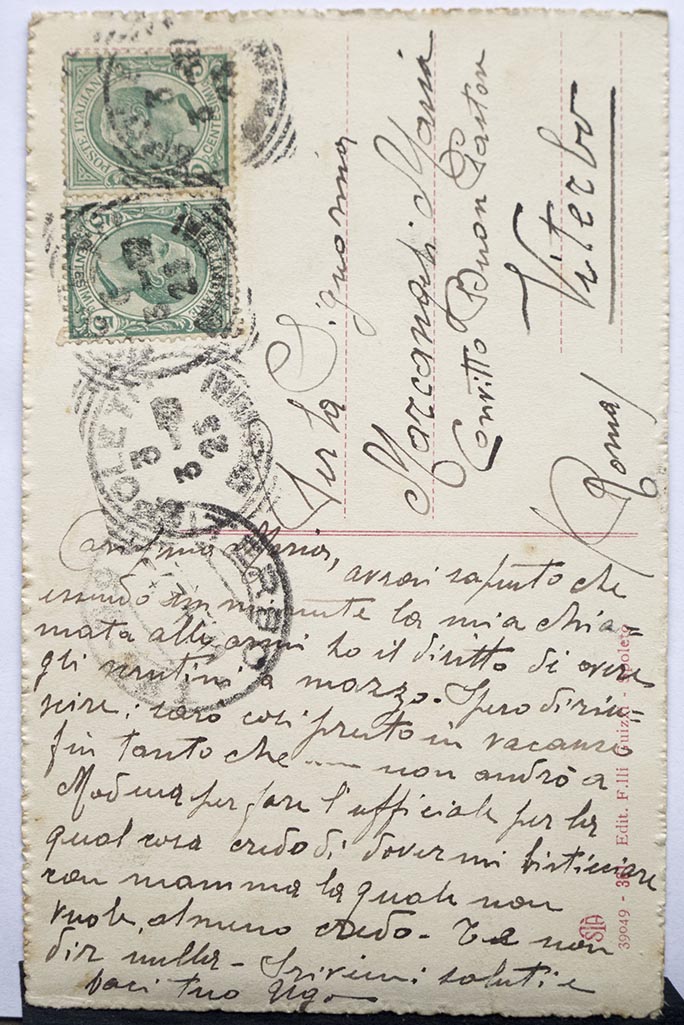 POSTE ITALIANE
CENTES
5
Per la Signorina
Marcangeli Maria
Convitto Buon Pastore
Viterbo
(Roma)
SPOLETO
3 3 25
Carissima Maria,
avrai saputo che
essendo imminente la mia chia=
mata alle armi ho il diritto di avere
gli scrutini a marzo. Spero di riu=
scire; sarò così presto in vacanze
fin tanto che ---- non andrò a
Modena per fare l'ufficiale per la
qual cosa credo di dovermi bisticciare
con mamma la quale non
vuole, almeno credo. Te non
dir nulla - Scrivimi saluti e
baci tuo Gigo
39049 - Edit. F.lli Guizzi - Spoleto